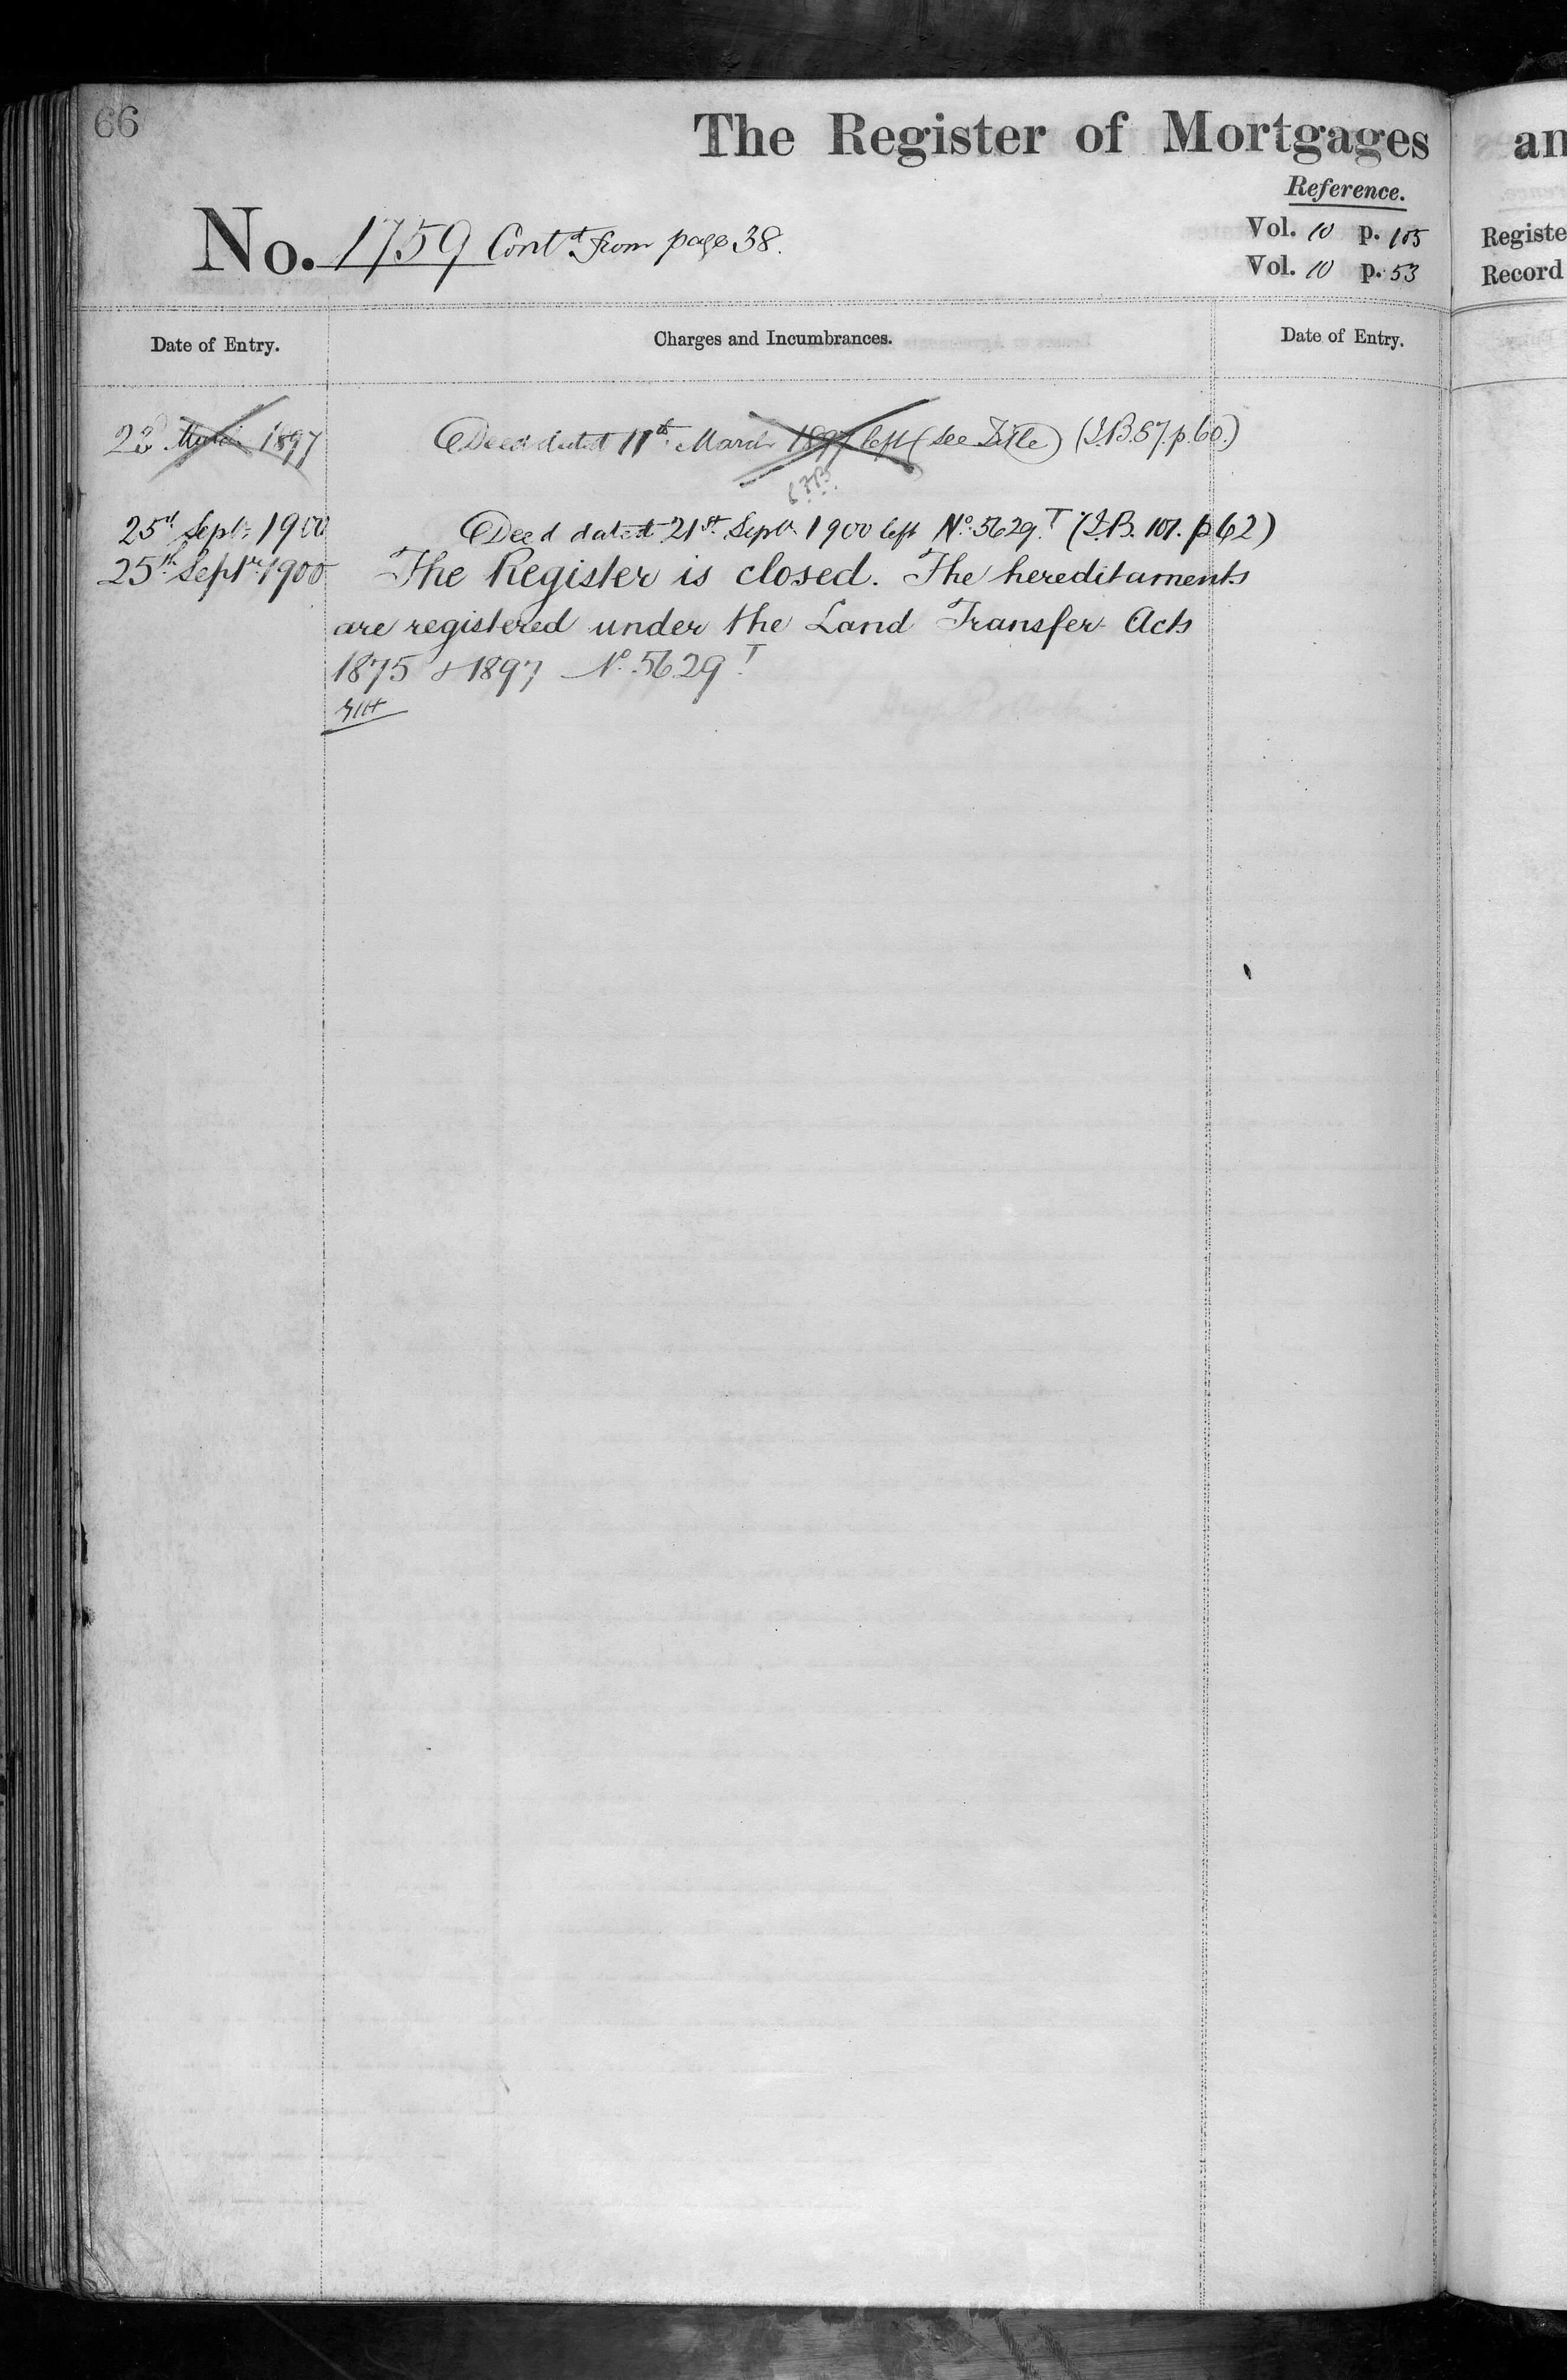 66
The Register of Mortgages
an
Reference.
No. 1759 Contd from page 38.
Vol. 10 p. 105
Registe
Vol. 10 p. 53
Record
Date of Entry.
Charges and Incumbrances.
Date of Entry.
22d March 1897 Deed dated 11th March 1897 left (see Title) (I.B. 87. p. 60.)
25th Septr 1900 Deed dated 21st Septr 1900 left No. 5629 T (I.B. 101. p 62)
25th Septr 1900 The Register is closed. The hereditaments
are registered under the Land Transfer Acts
1875 & 1897 No. 5629 T